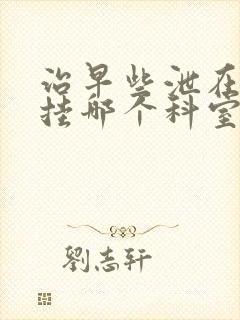 治早些泄在
挂哪个科室
劉志轩